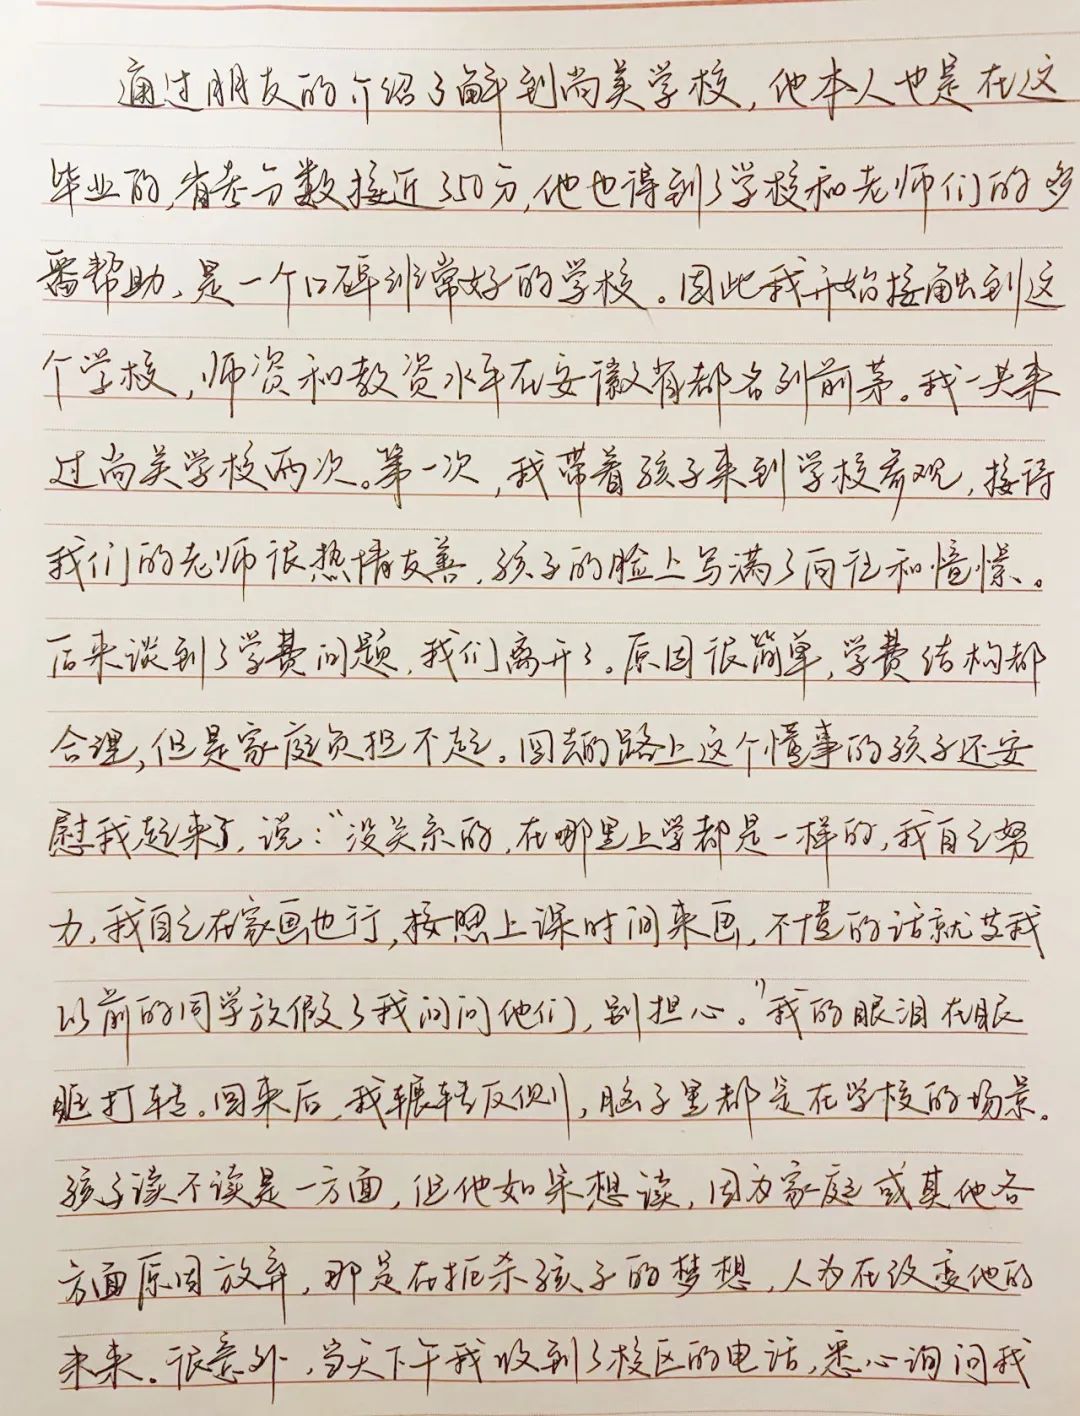 通过朋友的介绍了解到尚美学校，他本人也是在这
毕业的，省考分数接近250分，他也得到了学校和老师们的多
番帮助、是一个口碑非常好的学校。因此我开始接触到这
个学校，师资和教资水平在安徽省都名列前茅。我一共来
过尚美学校两次。第一次，我带着孩子来到学校参观，接待
我们的老师很热情友善，孩子的脸上写满了向往和憧憬。
后来谈到了学费问题，我们离开了。原因很简单，学费结构都
合理，但是家庭负担不起。回去的路上这个懂事的孩子还安
慰我起来了，说：“没关系的，在哪里上学都是一样的，我自己努
力，我自己在家画也行，按照上课时间来画，不懂的话就等我
以前的同学放假了我问问他们，别担心。”我的眼泪在眼
眶打转。回来后，我辗转反侧，脑子里都是在学校的场景。
孩子读不读是一方面，但他如果想读，因为家庭或其他各
方面原因放弃，那是在扼杀孩子的梦想，人为在改变他的
未来。很意外，当天下午我收到了校区的电话，悉心询问我